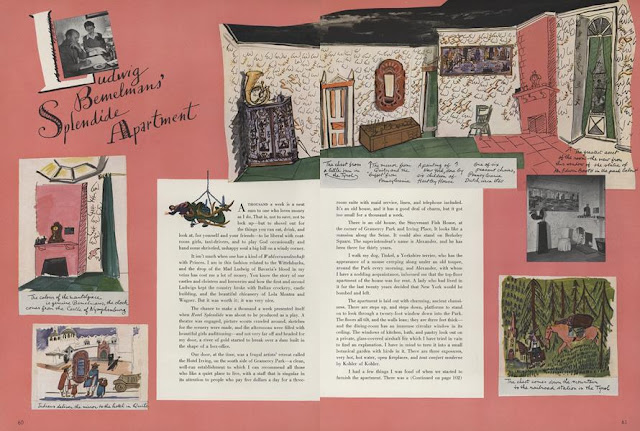 Ludwig
Bemelmans'
Splendide
Apartment
The chest from
a little inn in
the Tyrol
The mirror from
Quito and the
chest from
Pennsylvania
A painting of
New York done by
six children of
Hartley House
One of six
peasant chairs,
Pennsylvania
Dutch, circa 1800
The greatest asset
of the room: the view from
this window of the statue of
the Edwin Booth in the park below
The colors of the mantelpiece,
is genuine Bemelmans, the clock
comes from the Castle of Nymphenburg
Indians deliver the mirror to the hotel in Quito
The chest comes down the mountain
to the railroad station in the Tyrol
A THOUSAND a week is a neat
sum to one who loves money
as I do. That is, not to save, not to
lock up—but to shovel out for
the things you can eat, drink, and
look at, for yourself and your friends—to be liberal with oat-
meal girls, taxi-drivers, and to play God occasionally and
hand some shriveled, unhappy soul a big bill on a windy corner.
It isn't much when one has a kind of Wahlverwandtschaft
with Princes. I am in this fashion related to the Wittelsbachs,
and the drop of the Mad Ludwig of Bavaria's blood in my
veins has cost me a lot of money. You know the story of our
castles and chimeras and bravery and how the first and second
Ludwigs kept the country broke with Italian cookery, castle
building, and the beautiful chicanery of Lola Montez and
Wagner. But it was worth it; it was very nice.
The chance to make a thousand a week presented itself
when Hotel Splendide was about to be produced as a play. A
theatre was engaged, picture events crawled around, sketches
for the scenery were made, and the afternoons were filled with
beautiful girls auditioning—and not very far off and headed for
my door, a river of gold started to break over a dam built in
the shape of a box-office.
Our door, at the time, was a frugal artists' retreat called
the Hotel Irving, on the south side of Gramercy Park—a clean,
well-run establishment to which I can recommend all those
who like a quiet place to live, with a staff that is singular in
its attention to people who pay five dollars a day for a three-
room suite with maid service, linen, and telephone included.
It's an old house, and it has a good deal of charm, but it got
too small for a thousand a week.
There is an old house, the Stuyvesant Fish House, at
the corner of Gramercy Park and Irving Place. It looks like a
mansion along the Seine. It could also stand on Berkeley
Square. The superintendent's name is Alexander, and he has
been there for thirty years.
I walk my dog, Tinkel, a Yorkshire terrier, who has the
appearance of a mouse creeping along under an old toupee,
around the Park every morning; and Alexander, with whom
I have a nodding acquaintance, informed me that the top-floor
apartment of the house was for rent. A lady who had lived in
it for the last twenty years decided that New York would be
bombed and left.
The apartment is laid out with charming, ancient clumsi-
ness. There are steps up, and steps down, platforms to stand
on to look through a twenty-foot window down into the Park.
The floors all tilt, and the walls lean; they are three feet thick—
and the dining-room has an immense circular window in its
ceiling. The windows of kitchen, bath, and pantry look out on
a private, glass-covered airshaft for which I have tried in vain
to find an explanation. I have in mind to turn it into a small
botanical garden with birds in it. There are three exposures,
very hot, hot water, open fireplaces, and most comfort nowhere
by Kohler of Kohler.
I had a few things I was fond of when we started to
furnish the apartment. There was a (Continued on page 102)
60
61